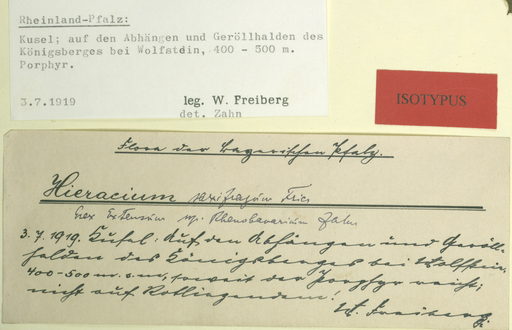 Rheinland-Pfalz:
Kusel; auf den Abhängen und Geröllhalden des
Königsberges bei Wolfstein, 400 - 500 m.
Porphyr.
3.7.1919 leg. W. Freiberg
det. Zahn
ISOTYPUS
Flora der bayerischen Pfalz.
Hieracium saxifragum Fries
Grex Extensum ssp. Rhenobavarium Zahn
3. 7. 1919. Kusel: Auf den Abhängen und Geröll-
halden des Königsberges bei Wolfstein,
400-500 m. s.m., soweit der Porphyr reicht;
nicht auf Rotliegendem!
W. Freiberg.